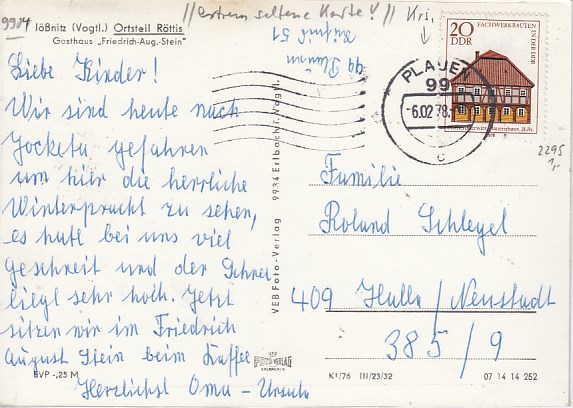 9904
//extrem seltene Karte!// Kri.
Jößnitz (Vogtl.) Ortsteil Röttis
Gasthaus „Friedrich-Aug.-Stein"
99 Plauen
51
20
DDR
FACHWERKBAUTEN IN DER DDR
1978
PLAUEN
99
-6.02.78
c
2295
1,-
Liebe Kinder!
Wir sind heute nach
Jocketa gefahren
um hier die herrliche
Winterpracht zu sehen,
es hatt bei uns viel
geschneit und der Schnee
liegt sehr hoch. Jetzt
sitzen wir im Friedrich
August Stein beim Kaffee
Herzlichst Oma - Ursula
EVP -,25 M
VEB Foto-Verlag 9934 Erlbach i. Vogtl.
Familie
Roland Schlegel
409 Halle/Neustadt
385/9
VEB
FOTO-VERLAG
ERLBACH
K1/76 III/23/32
07 14 14 252